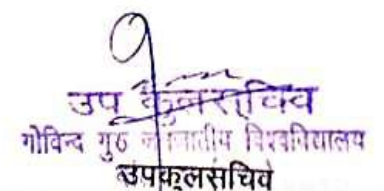 उप कुलसचिव
गोविन्द गुरु जनजातीय विश्वविद्यालय
उपकुलसचिव